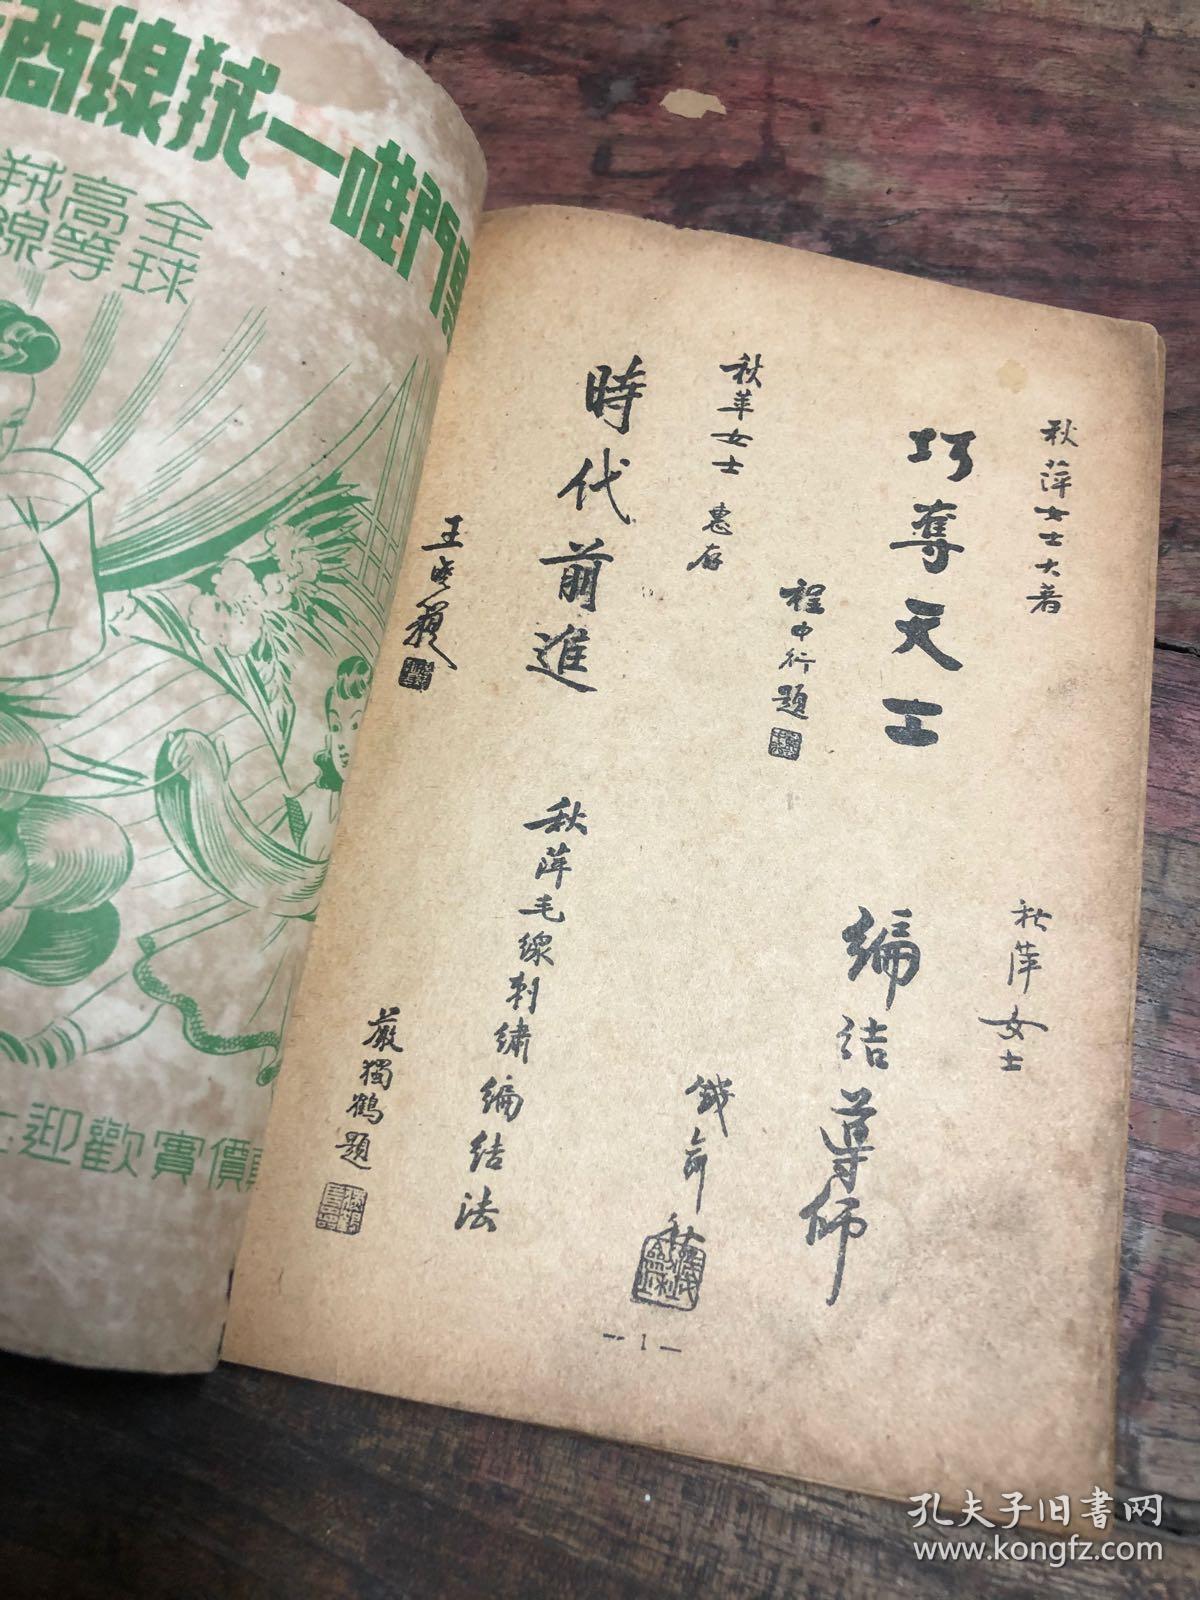 秋萍女士大著
巧奪天工
程中行題
秋苹女士 惠存
時代前進
秋萍女士
編結導師
秋萍毛線刺繡編結法
嚴獨鶴題
— 1 —
門唯一羢線商
全球
高等
羢線
價實歡迎
孔夫子旧书网
www.kongfz.com